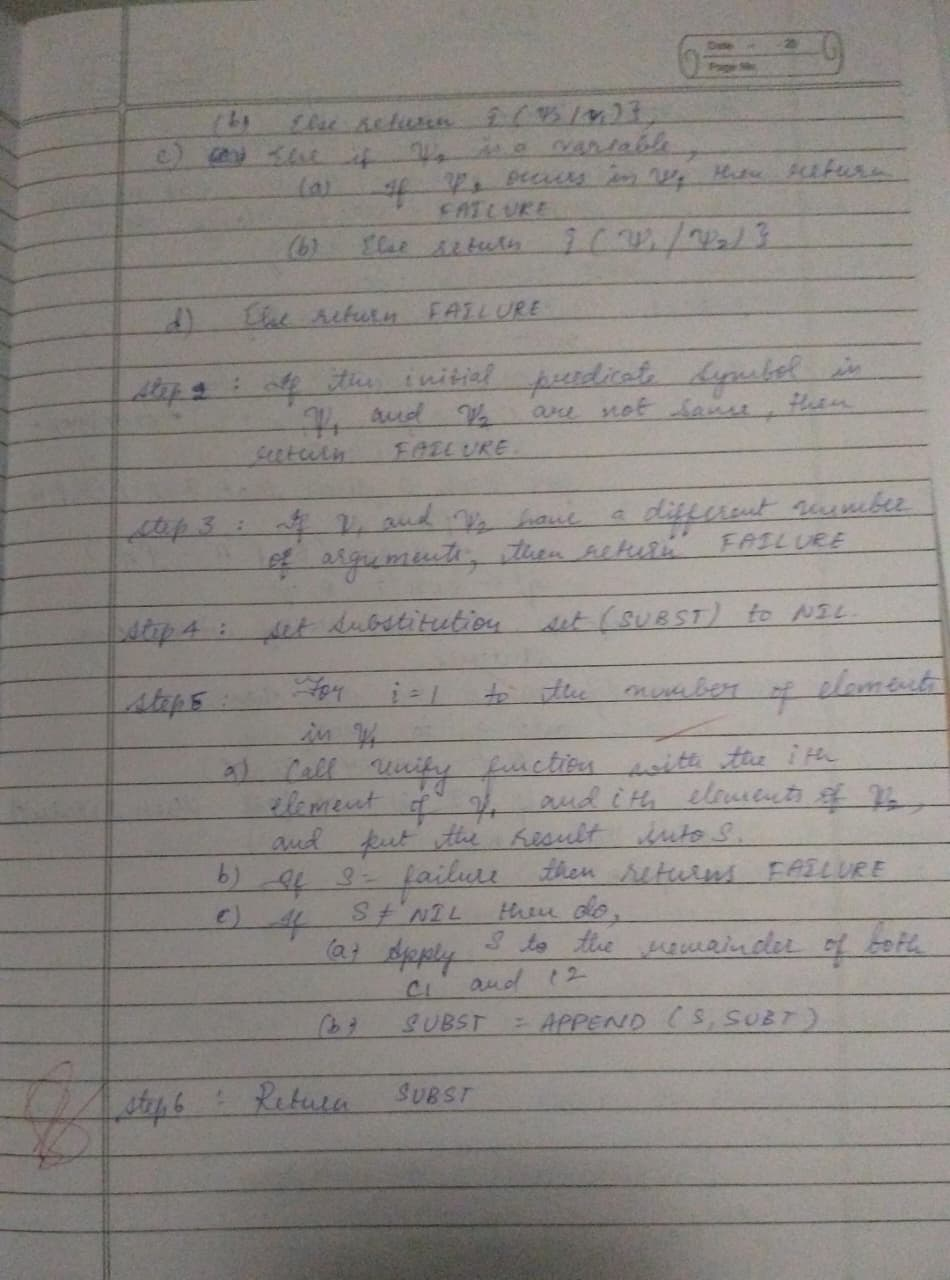 Date - 20
Page No.
(b) Else return {(Ψ2/Ψ1)},
c) Else if Ψ2 is a variable,
(a) If Ψ2 occurs in Ψ1 then return
FAILURE
(b) Else return {(Ψ1/Ψ2)}
d) Else return FAILURE
Step 2 : If the initial predicate symbol in
Ψ1 and Ψ2 are not same, then
return FAILURE.
Step 3 : If Ψ1 and Ψ2 have a different number
of arguments, then return FAILURE
Step 4 : set substitution set (SUBST) to NIL.
Step 5 : For i=1 to the number of elements
in Ψ1
a) Call unify function with the ith
element of Ψ1 and ith elements of Ψ2,
and put the result into S.
b) If S = failure then returns FAILURE
c) If S ≠ NIL then do,
(a) Apply S to the remainder of both
C1 and L2
(b) SUBST = APPEND (S, SUBT)
Step 6 : Return SUBST